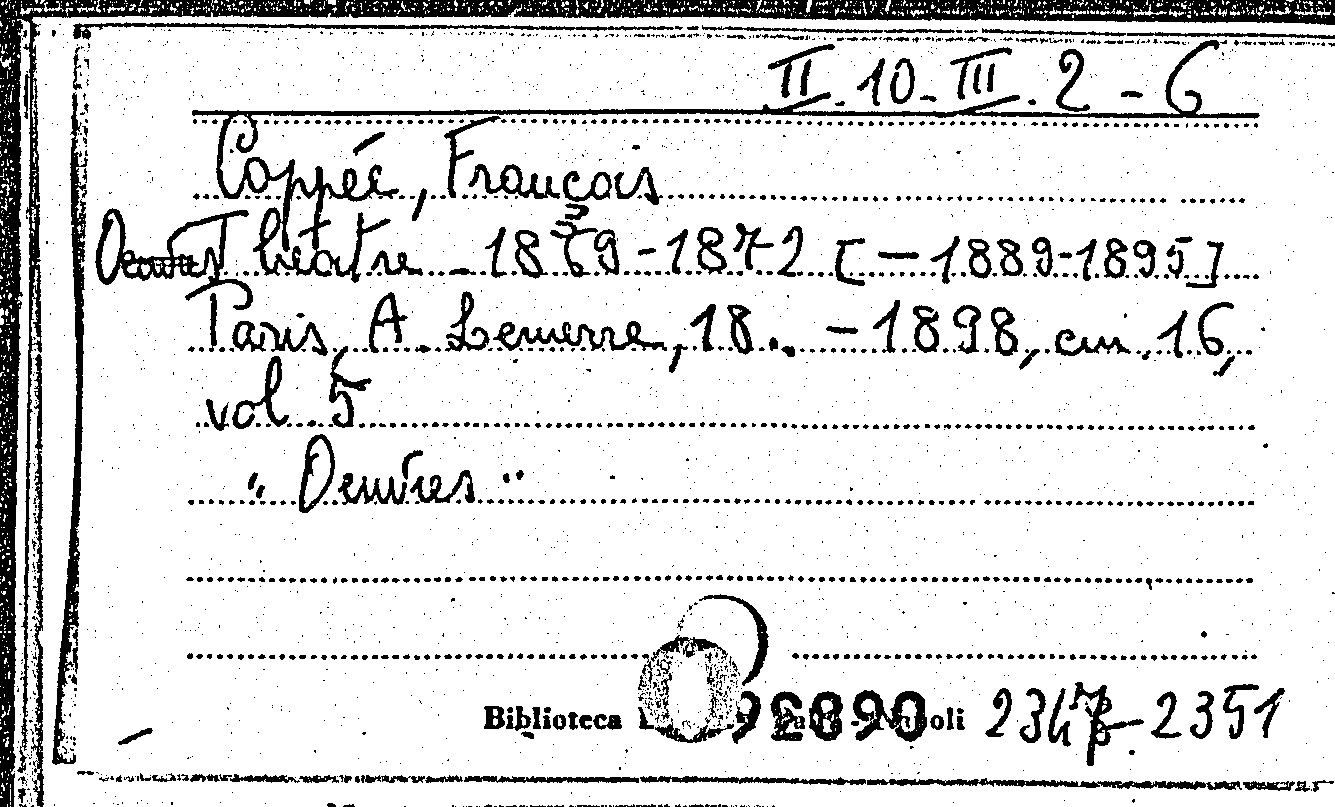 II. 10-III. 2 - 6
Coppée, François
Oeuvres Théatre - 1869-1872 [-1889-1895]
Paris, A. Lemerre, 18.. - 1898, cm. 16,
vol. 5
"Oeuvres"
Biblioteca
2347-2351